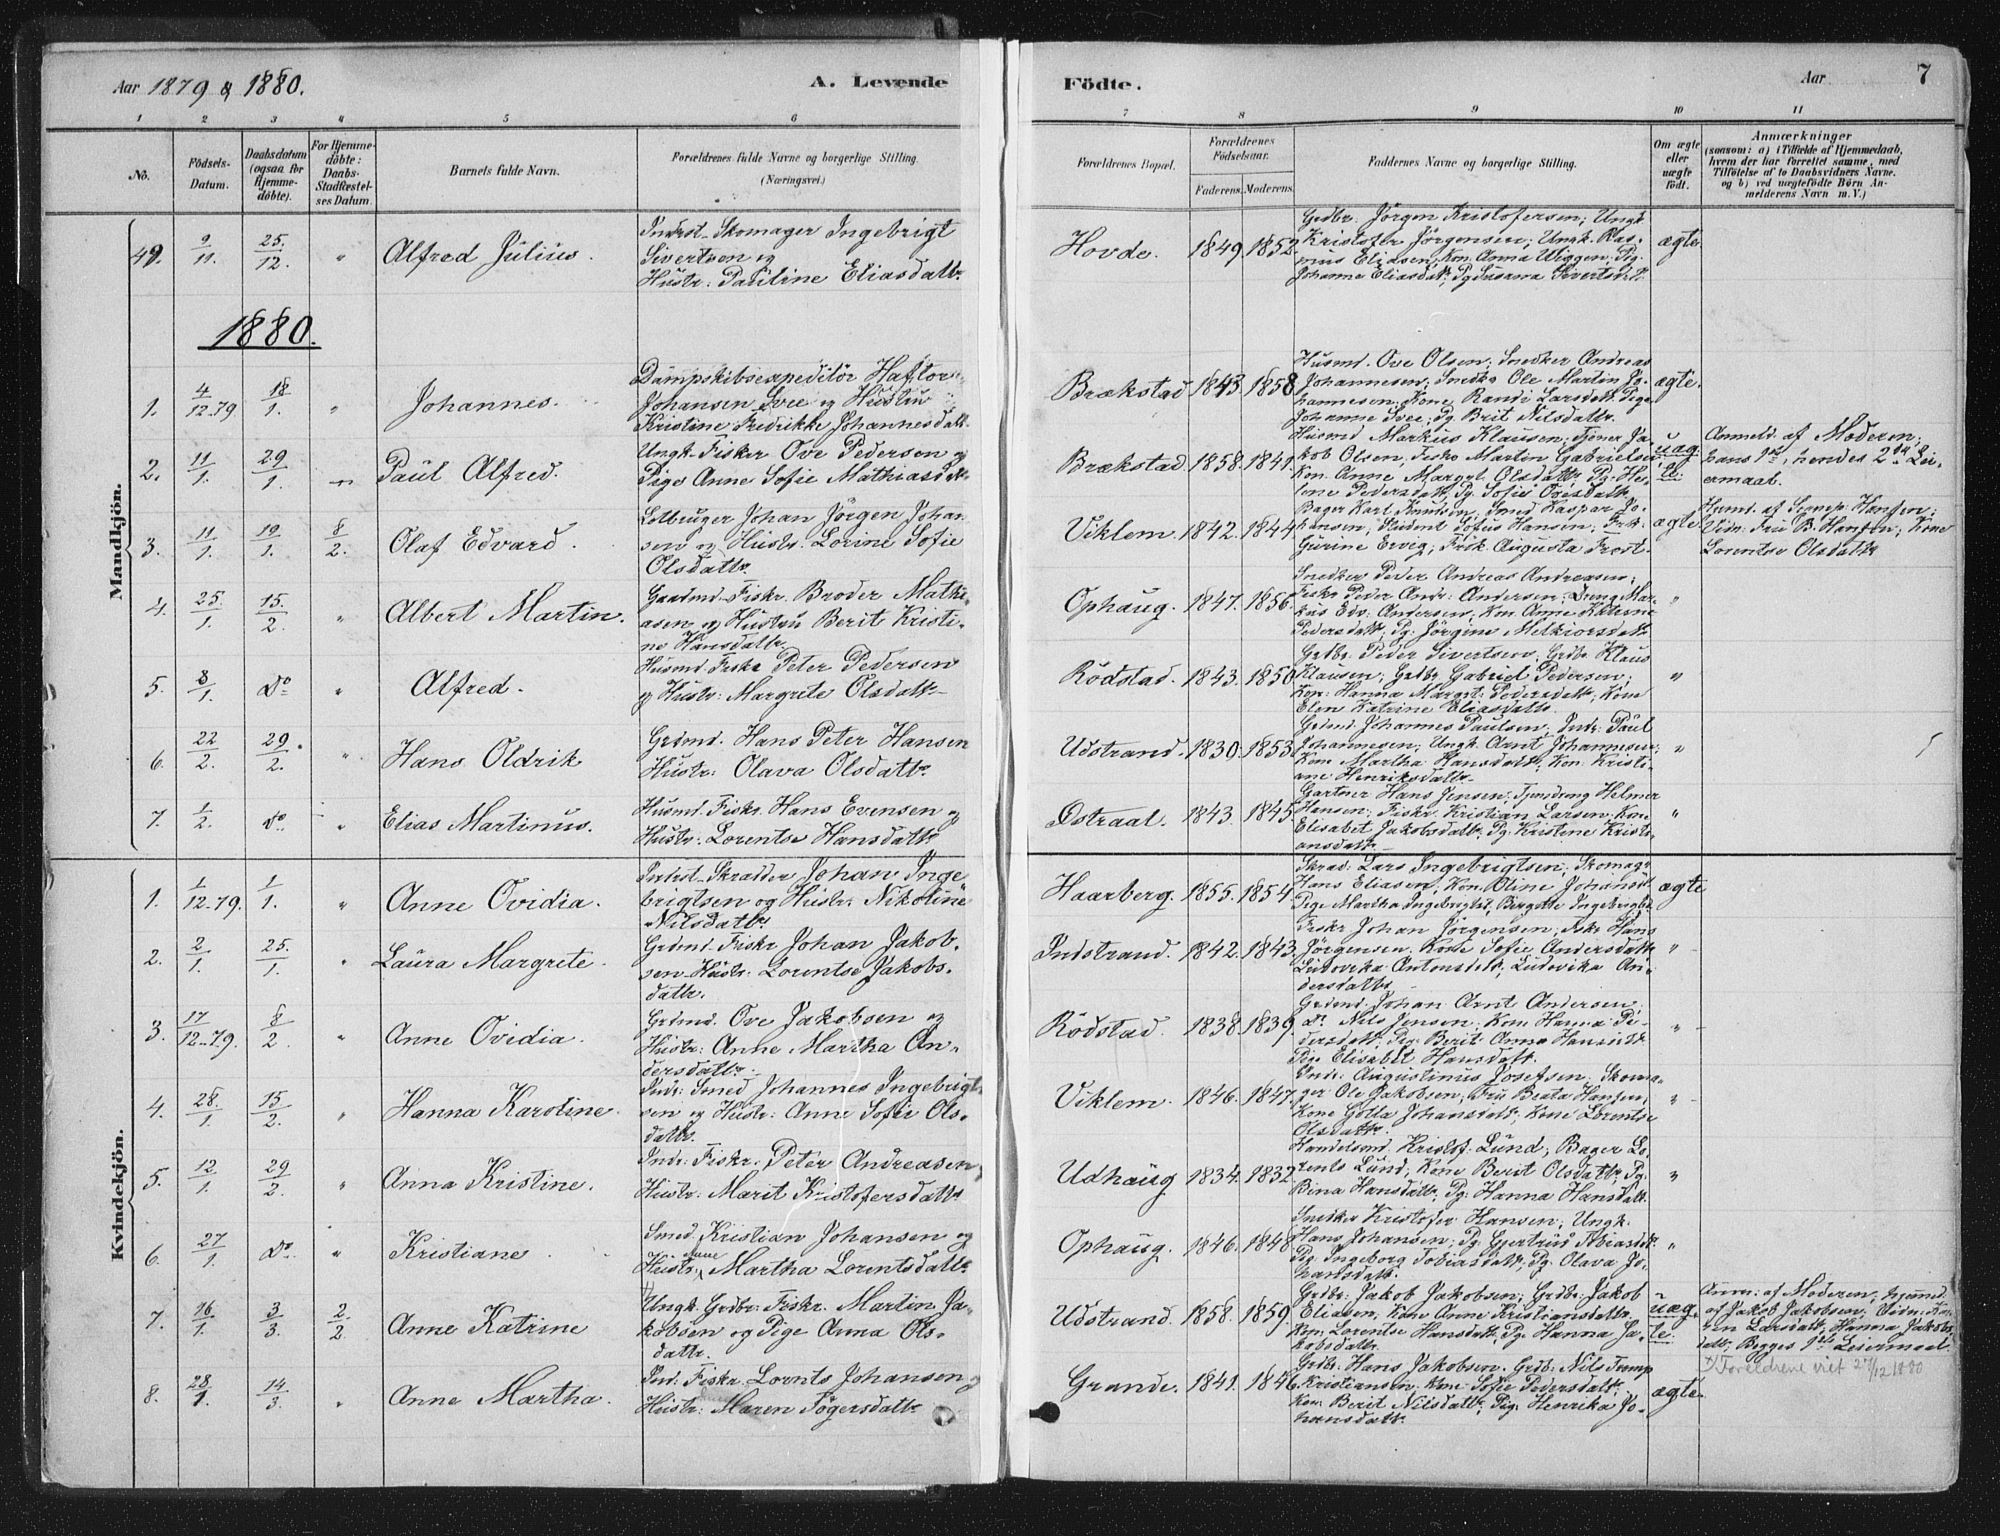 Aar 1879 & 1880.
A. Levende
Födte.
Aar
7
1 2 3 4 5 6 7 8 9 10 11
No.
Födsels-
Datum.
Daabsdatum
(ogsaa for
Hjemme-
döbte).
For Hjemme-
döbte:
Daabs-
Stadfæstel-
ses Datum.
Barnets fulde Navn.
Forældrenes fulde Navne og borgerlige Stilling.
(Næringsvei.)
Forældrenes Bopæl.
Forældrenes
Födselsaar.
Faderens. Moderens.
Faddernes Navne og borgerlige Stilling.
Om ægte
eller
uægte
födt.
Anmærkninger
(saasom: a) i Tilfælde af Hjemmedaab,
hvem der har forrettet samme, med
Tilföielse af to Daabsvidners Navne.
og b) ved uægtefödte Börn An-
melderens Navn m. V.)
Mandkjön.
49. 9/11. 25./12. " Alfred Julius.
Inderst-Skomager Ingebrigt
Sivertsen og
Hustr: Pauline Eliasdattr.
Hovde. 1849. 1852.
Grdbr. Jörgen Kristofersen; Ungk.
Kristofer Jörgensen; Ungk. Ras-
mus Eliasen; Kon. Anna Wiggen; Pig.
Johanne Eliasdatt; Pg Susanna Sivertsdt.
ægte
1880.
1. 4/12.79 18/1. " Johannes.
Dampskibsexpeditör Haftor
Johansen Svee og Hustru
Kristine Fredrikke Johannesdatt.
Brækstad 1843. 1858.
Husmd. Ove Olsen; Snedker Andreas
Johannesen; Snedkr Ole Martin Jo-
hannesen; Kone Randi Larsdatt; Pige
Johanne Svee; Pg Brit Nilsdattr.
ægte.
2. 11/1. 29/1. " Paul Alfred.
Ungk. Fisker Ove Pedersen og
Pige Anne Sofie Mathiasdatt.
Brækstad. 1858. 1841.
Husmd Markus Klausen; Tjener Ja-
kob Olsen, Fiskr Martin Gabrielsen;
Kon. Anne Margrt. Olsdattr; Pg. He-
lene Pedersdatt; Pg. Sofie Ovesdatt.
uæg-
te
Anmeld. af Moderen;
hans 1ste, hendes 2det Lei-
ermaal.
3. 11/1. 19/1. 8/2. Olaf Edvard.
Lotbruger Johan Jörgen Johan-
sen og Hustr. Lorine Sofie
Olsdattr.
Viklem. 1842. 1844.
Bager Karl Knudsen, Smed Kaspar Jo-
hansen, Student Sofus Hansen; Frk.
Gurine Ervig; Frk. Augusta Frost.
ægte
Hjmd. af Samp. Hansen;
Vidn: Fru B. Hansen, Kone
Lorentse Olsdattr
4. 25./1. 15./2. " Albert Martin.
Gaardmd-Fiskr. Broder Mathi-
asen og Hustru Berit Kristi-
ne Hansdattr.
Ophaug. 1847. 1856.
Snedker Peder Andreas Andreasen;
Fiskr Peder Andr: Andersen; Dreng Mar-
kus Edv. Andersen; Kon. Anne Katrine
Pedersdatt; Pg. Jörgine Melkiorsdatt
"
5. 8/1. Do " Alfred.
Husmd. Fiskr Peter Pedersen
og Hustr: Margrete Olsdatt-
Rödstad. 1843. 1850.
Grdbr. Peder Sivertsen; Grdbr. Klaus
Klausen; Grdbr Gabriel Pedersen;
Kon: Hanna Margrt. Pedersdatt; Kone
Elen Katrine Eliasdattr.
"
6. 22/2. 29./2. " Hans Oldrik
Grdmd. Hans Peter Hansen
Hustr: Olava Olsdattr.
Udstrand. 1830. 1853.
Grdmd. Johannes Paulsen, Indr. Paul
Johannesen; Ungk. Arnt Johannesen;
Kone Martha Hansdatt; Kon. Kristi-
ane Henriksdattr-
"
7. 1/2. do. " Elias Martinus.
Husmd. Fiskr. Hans Evensen og
Hustr: Lorentse Hansdattr
Östraat. 1843. 1845.
Gartner Hans Jensen; Tjendrng Helmer
Hansen; Fiskr. Kristian Larsen; Kone
Elisabet Jakobsdattr; Pg. Kristine Kristi-
ansdattr-
"
Kvindekjön.
1. 1/12.79. 1/1. " Anne Ovidia.
Inderst-Skrædder Johan Inge-
brigtsen og Hustr: Nikoline
Nilsdattr.
Haarberg. 1855. 1854.
Skræd: Lars Ingebrigtsen; Skomagr
Hans Eliasen; Kon. Oline Johansdt.
Pige Martha Ingebrigtsd; Bergitte Ingebrigtsd.
ægte
2. 2/1. 25./1. " Laura Margrete.
Grdmd. Fiskr Johan Jakob-
sen-Hustr: Lorentse Jakobs-
dattr.
Indstrand. 1842. 1843.
Fiskr Johan Jörgensen; Fiskr Hans
Jörgensen. Kone Sofie Andersdattr
Ludovika Antonsdatt, Ludovika An-
dersdattr.
"
3. 17/12.79. 8/2. " Anne Ovidia.
Grdmd. Ove Jakobsen og
Hustr: Anne Martha An-
dersdattr.-
Rödstad. 1838. 1839.
Grdmd. Johan Arnt Andersen
do Nils Jensen; Kone Hanna Pe-
dersdatt; Pg. Berit Anna Hansdt.
Pige Elisabet Hansdatt.
"
4. 28./1. 15/2. " Hanna Karoline.
Indr: Smed Johannes Ingebrigt-
sen og Hustr: Anne Sofie Ols-
dattr.
Viklem. 1846. 1847.
Indr: Augustinus Josefsen. Skoma-
ger Ole Jakobsen; Fru Beata Hansen;
Kone Golla Johansdatt; Kone Lorentse
Olsdattr.
"
5. 12/1. 29/2. " Anna Kristine.
Indr: Fiskr. Peter Andreasen
Hustr: Marit Kristofersdattr
Udhaug 1834. 1832.
Handelsmd. Kristof. Lund; Bager Lo-
rents Lund; Kone Berit Olsdattr; Pg.
Bina Hansdattr; Pg: Hanna Hansdatt.
"
6. 27/1. Do " Kristiane.
Smed Kristian Johansen og
Hustr: Anne Martha Lorentsdattr.
Ophaug. 1846. 1848.
Snedker Kristofer Hansen; Ungk.
Hans Johansen; Pg. Gjertrud Tobiasdt.
Pig. Ingeborg Tobiasdatt; Pg. Olava Jo-
hansdatt.
"
7. 16/1. 3/3. 2/2. Anne Katrine
Ungk. Grdbr. Fiskr. Martin Ja-
kobsen og Pige Anna Ols-
dattr.
Udstrand. 1858. 1859.
Grdbr: Jakob Jakobsen; Grdbr: Jakob
Eliasen, Kone Anne Kristiansdattr
Kon. Lorentse Hansdatt; Pg. Hanna Ja-
kobsdattr.
uæg-
te.
Anm: af Moderen, hjemd.
af Jakob Jakobsen; Vidn: Ka-
ren Larsdatt, Hanna Jakobs-
datt; Begges 1ste Leiermaal.
1/ Foreldrene viet 27/12 1880
8. 28/1. 14/3. " Anne Martha.
Ind: Fiskr. Lornts Johansen og
Hustr: Maren Tögersdattr
Grande. 1841. 1846.
Grdbr: Hans Jakobsen. Grdb: Nils Tramp
Kristiansen; Kone Sofie Pedersdattr
Kon. Berit Nilsdattr, Pig. Henrika Jo-
hansdattr.
ægte